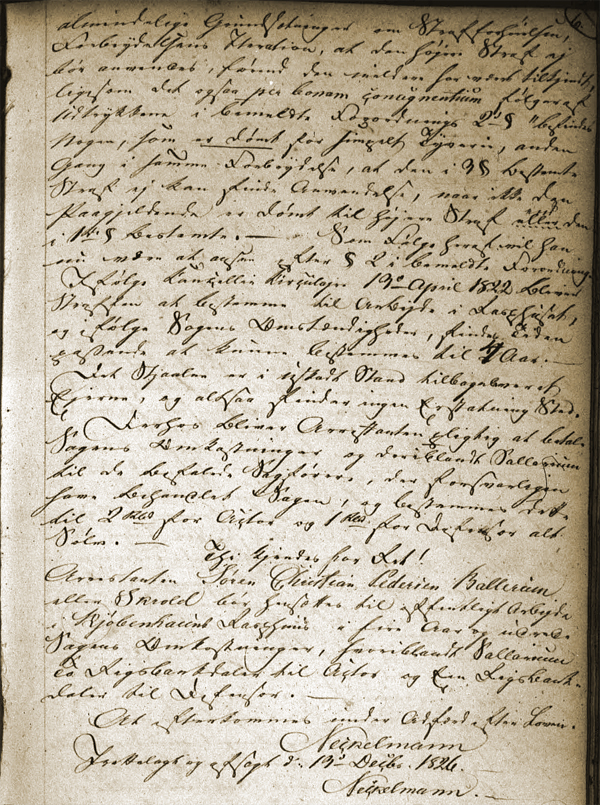 almindelige Grundsætninger om Strafforhøielsen,
Forbrydelsens Iteration, at den høiere Straf ej
bør anvendes, førend den mildere har været
ligesom det ogsaa per bonam følger af
Udtrykkene i bemeldte Forordnings 2d § "befindes
Nogen, som er dømt for simpelt Tyverie, anden
Gang i samme Forbrydelse, at den i 3 § bestemte
Straf ej kan finde Anvendelse, naar ikke den
Paagjældende er dømt til høiere Straf den
i 1ste § bestemte. — Som Følge heraf vil han
nu være at ansee efter § 2 i bemeldte Forordning.
Ifølge Kancellie Circulaire 13d April 1822 bliver
Straffen at bestemme til Arbeide i Rasphuset,
og ifølge Sagens Omstændigheder, findes Tiden
passende at kunne bestemmes til 4 Aar. —
Det Stjaalne er i Stand tilbageleveret
Ejerne, og altsaa finder ingen Erstatning Sted.
Derhos bliver Arrestanten pligtig at betale
Sagens Omkostninger og deriblandt Sallarium
til de befalede Sagførere, der forsvarligen
have behandlet Sagen, og bestemmes dette
til 2 Rbd for Actor og 1 Rbd for Defensor alt
Sølv. —
Thi kjendes for Ret!
Arrestanten Sören Christian Pedersen Ballerum
eller Skrold bør hensættes til offentligt Arbeide
i Kjøbenhavns Rasphuus i fire Aar og udrede
Sagens Omkostninger, hvoriblandt Sallarium
To Rigsbankdaler til Actor og Een Rigsbank-
daler til Defensor. —
At efterkommes under Adfærd efter Loven.
Neckelmann
og afsagt d. 13d Decbr. 1826.
Neckelmann. —